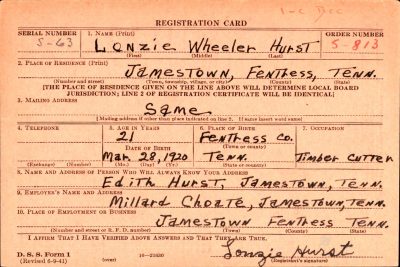 1-C Dec
REGISTRATION CARD
SERIAL NUMBER 1. NAME (Print) ORDER NUMBER
S-63 Lonzie Wheeler Hurst S-813
(First) (Middle) (Last)
2. PLACE OF RESIDENCE (Print)
Jamestown, Fentress, Tenn.
(Number and street) (Town, township, village, or city) (County) (State)
[THE PLACE OF RESIDENCE GIVEN ON THE LINE ABOVE WILL DETERMINE LOCAL BOARD
JURISDICTION; LINE 2 OF REGISTRATION CERTIFICATE WILL BE IDENTICAL]
3. MAILING ADDRESS
Same
[Mailing address if other than place indicated on line 2. If same insert word same]
4. TELEPHONE 5. AGE IN YEARS 6. PLACE OF BIRTH 7. OCCUPATION
21 Fentress Co.
DATE OF BIRTH (Town or county)
Mar. 28, 1920 Tenn. Timber Cutter
(Exchange) (Number) (Mo.) (Day) (Yr.) (State or country)
8. NAME AND ADDRESS OF PERSON WHO WILL ALWAYS KNOW YOUR ADDRESS
Edith Hurst, Jamestown, Tenn.
9. EMPLOYER'S NAME AND ADDRESS
Millard Choate, Jamestown, Tenn.
10. PLACE OF EMPLOYMENT OR BUSINESS
Jamestown Fentress Tenn.
(Number and street or R. F. D. number) (Town) (County) (State)
I AFFIRM THAT I HAVE VERIFIED ABOVE ANSWERS AND THAT THEY ARE TRUE.
D. S. S. Form 1 Lonzie Hurst
(Revised 6-9-41) (over) 16—21630 (Registrant's signature)